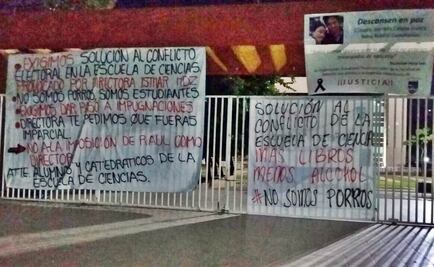 EXIGIMOS SOLUCIÓN AL CONFLICTO
ELECTORAL EN LA ESCUELA DE CIENCIAS,
PROVOCADO POR DIRECTORA
NO SOMOS PORROS, SOMOS ESTUDIANTES
EXIGIMOS DAR PASO A IMPUGNACIONES
DIRECTORA TE PEDIMOS QUE FUERAS
IMPARCIAL.
NO A LA IMPOSICIÓN DE RAUL COMO
DIRECTOR
ATTE: ALUMNOS Y CATEDRATICOS DE LA
ESCUELA DE CIENCIAS.
Descansen en paz
¡JUSTICIA!
SOLUCIÓN AL
CONFLICTO DE LA
ESCUELA DE CIENCIAS
MAS LIBROS
MENOS ALCOHOL
#NO SOMOS PORROS